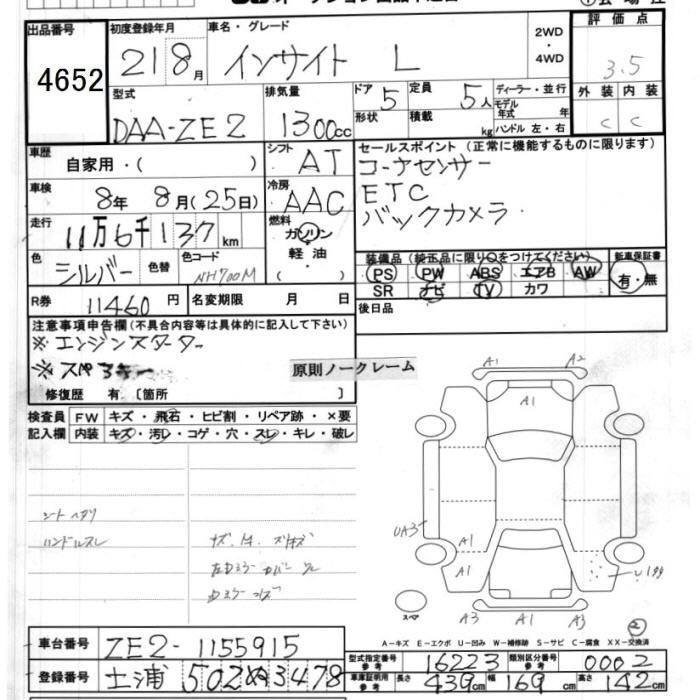 出品番号
4652
初度登録年月
21 8月
車名・グレード
インサイト L
2WD
・
4WD
評価点
3.5
外装 内装
C C
型式
DAA-ZE2
排気量
1300cc
ドア 5
形状
定員 5人
積載 kg
ディーラー・並行
モデル年式 年
ハンドル 左・右
車歴
自家用・( )
シフト AT
セールスポイント (正常に機能するものに限ります)
コーナーセンサー
ETC
バックカメラ
車検
8年 8月(25日)
冷房 AAC
走行
11万6千137km
燃料
ガソリン
軽油
( )
色 シルバー
色替
色コード NH700M
装備品(純正品に限り○をつけてください)
PS PW ABS エアB AW
SR ナビ TV カワ
新車保証書
有・無
R券 11460円
名変期限 月 日
後日品
注意事項申告欄(不具合内容等は具体的に記入して下さい)
※エンジンスターター
※スペアキー
原則ノークレーム
修復歴 有.〔箇所 〕
検査員
記入欄
FW キズ・飛石・ヒビ割・リペア跡・×要
内装 キズ・汚レ・コゲ・穴・スレ・キレ・破レ
シートヘタリ
ハンドルスレ
A1 A2
A1
UA3
A1
A1
A3 A1 A3
スペア
2
A-キズ E-エクボ U-凹み W-補修跡 S-サビ C-腐食 XX-交換済
車台番号 ZE2-1155915
登録番号 土浦 502 ぬ 3478
型式指定番号 参考 16223
類別区分番号 参考 0002
車庫証明用 参考 長さ 439cm 幅 169cm 高さ 142cm